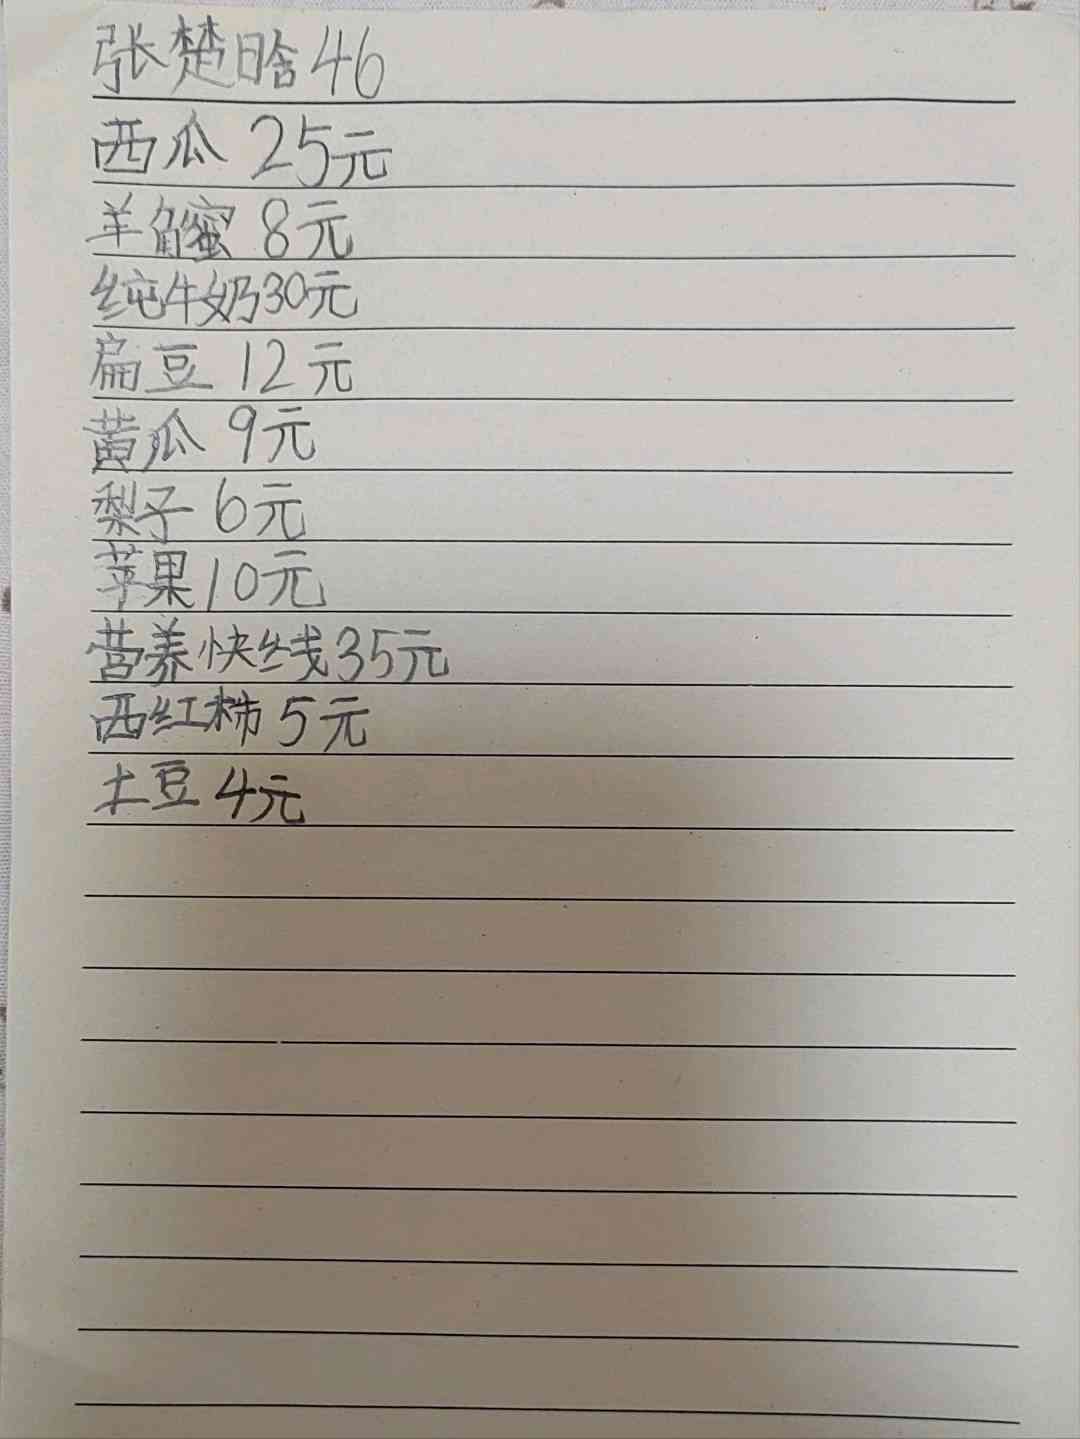 张楚晗46
西瓜 25元
羊角蜜 8元
纯牛奶30元
扁豆 12元
黄瓜 9元
梨子 6元
苹果10元
营养快线35元
西红柿 5元
土豆 4元